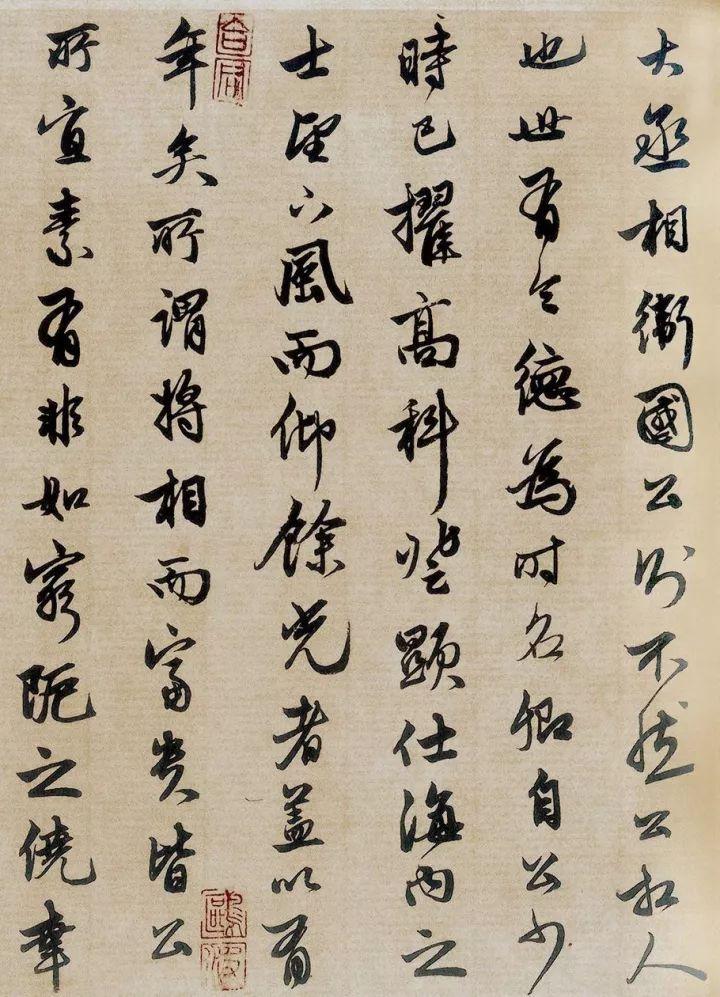 大丞相衛國公則不然公相人
也世有令德為时名卿自公少
時已擢高科登顯仕海內之
士望下風而仰餘光者蓋以有
年矣所謂將相而富貴皆公
所宜素有非如窮阨之僥幸
鷗波